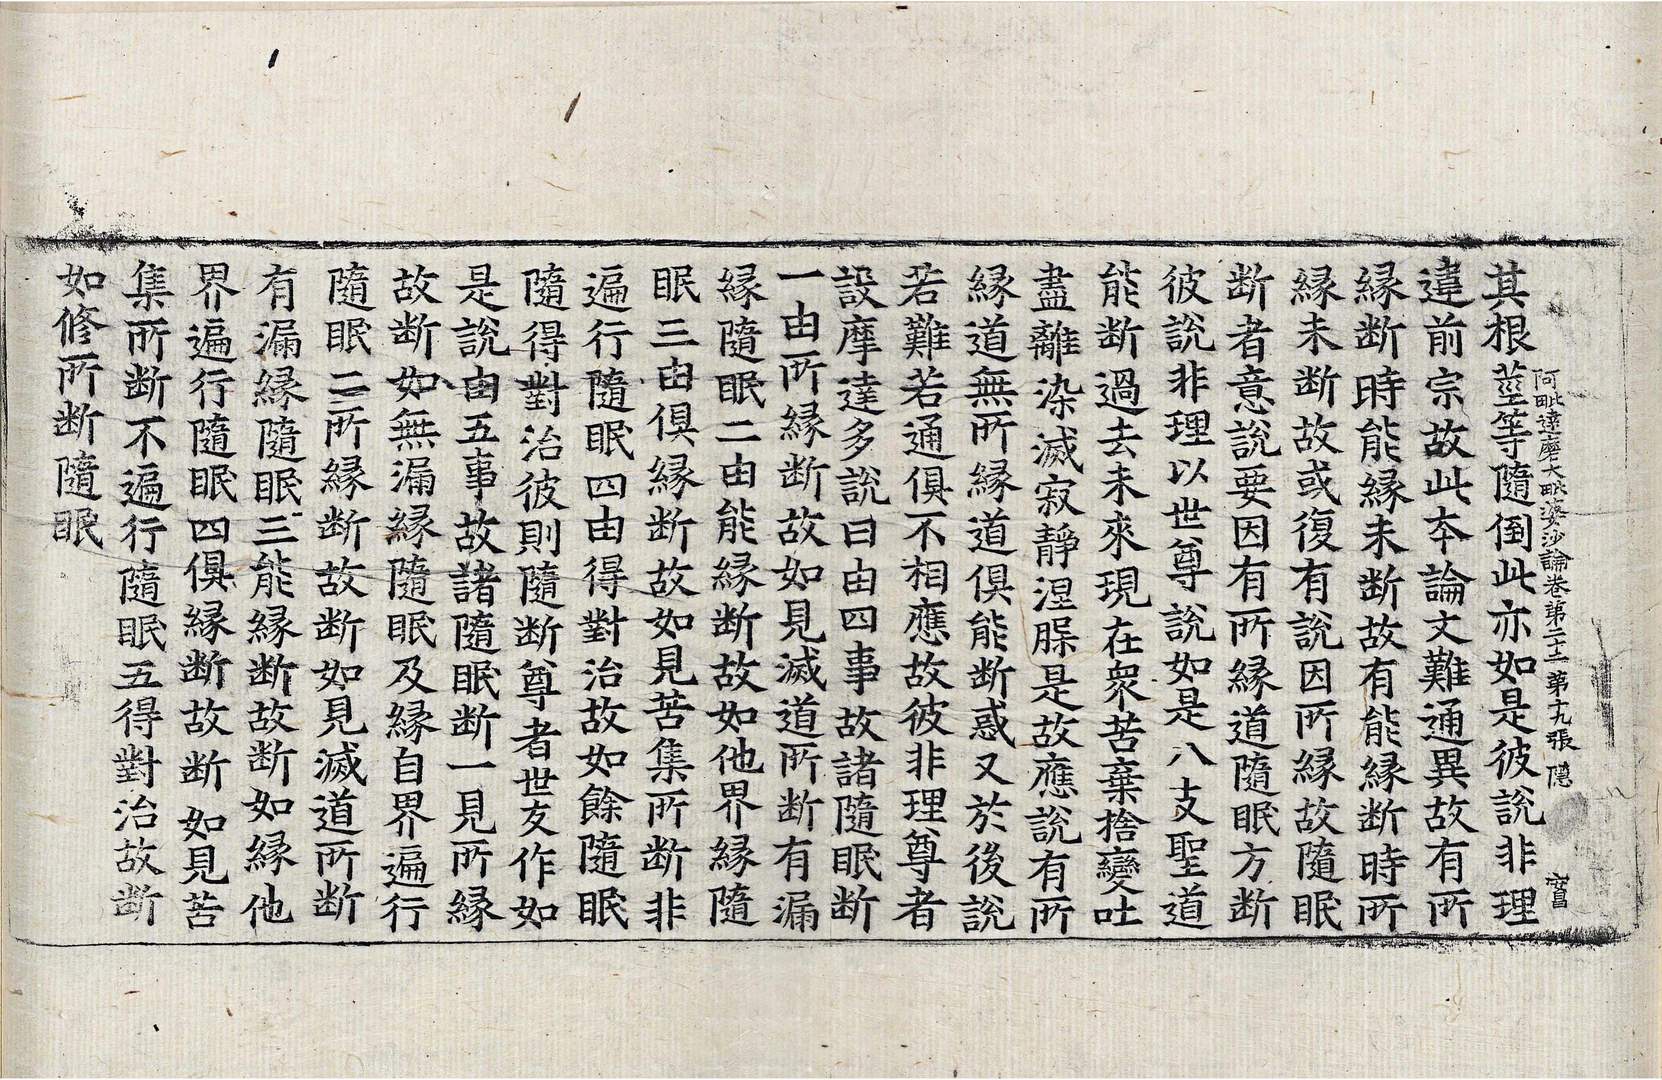 阿毗達磨大毗婆沙論卷第二十二 第十九張 隱
其根莖等隨倒此亦如是彼說非理
違前宗故此本論文難通異故有所
縁断時能縁未断故有能縁断時所
縁未断故或復有說因所縁故隨眠
断者意說要因有所縁道隨眠方断
彼說非理以世尊說如是八支聖道
能断過去未來現在衆苦棄捨變吐
盡離染滅寂靜涅槃是故應說有所
縁道無所縁道俱能断惑又於後說
若難若通俱不相應故彼非理尊者
設摩達多說曰由四事故諸隨眠断
一由所縁断故如見滅道所断有漏
縁隨眠二由能縁断故如他界縁隨
眠三由俱縁断故如見苦集所断非
遍行隨眠四由得對治故如餘隨眠
隨得對治彼則隨断尊者世友作如
是說由五事故諸隨眠断一見所縁
故断如無漏縁隨眠及縁自界遍行
隨眠二所縁断故断如見滅道所断
有漏縁隨眠三能縁断故断如縁他
界遍行隨眠四俱縁断故断如見苦
集所断不遍行隨眠五得對治故断
如修所断隨眠